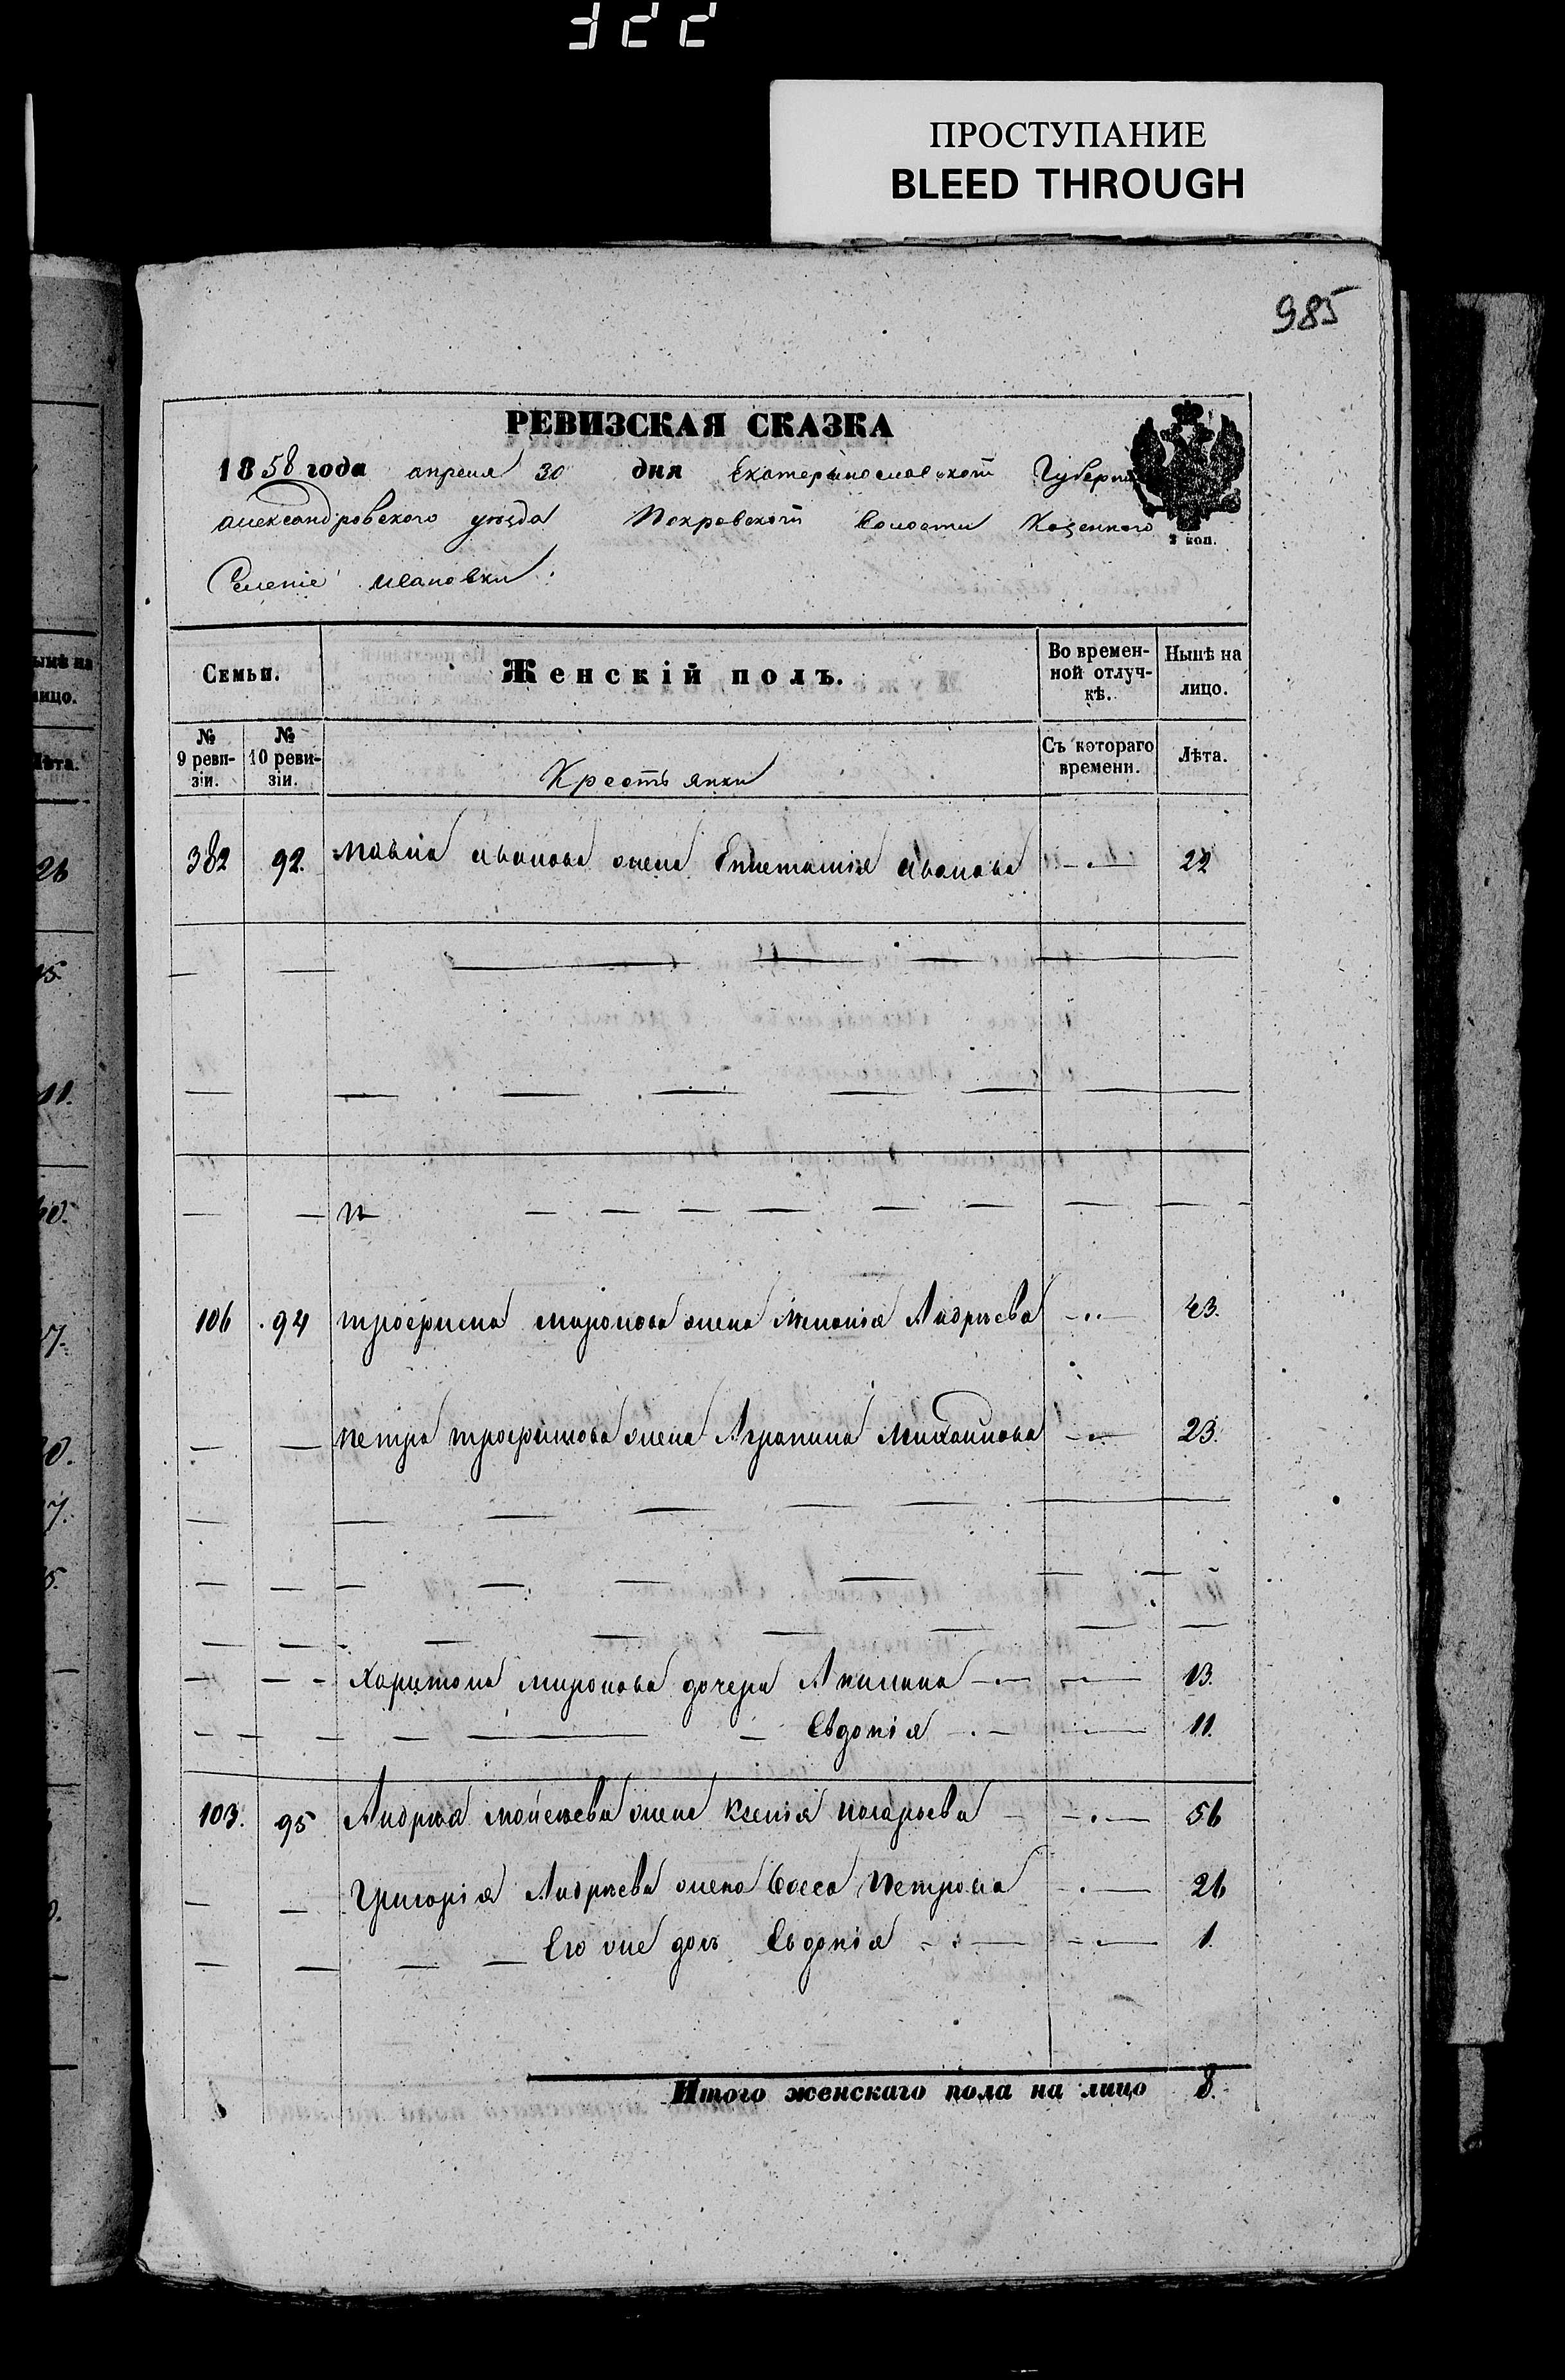 322
ПРОСТУПАНИЕ
BLEED THROUGH
985
РЕВИЗСКАЯ СКАЗКА
1858 года апреля 30 дня Екатеринославской Губерни
Александровского уѣзда Покровской волости Казенного
2 коп.
Селеніе Ивановки
Семьи. Женскій полъ. Во времен-ной отлуч-кѣ. Нынѣ на лицо.
№ 9 реви-зіи. № 10 реви-зіи. Крестьянки Съ котораго времени. Лѣта.
382 92. Ивана жена Иванова 22
106 94 Трофима Миронова жена Меланія Андрѣева 43.
Петра Трофимова жена Агрипина Михаилова 23.
Харитона Миронова дочери Акилина 13.
Евдокія 11.
103. 95 Андрѣя Мойсѣева жена Ксенія 56
Григорія Андрѣева жена Петрова 26
Его же дочь Евдокія 1.
Итого женскаго пола на лицо 8.